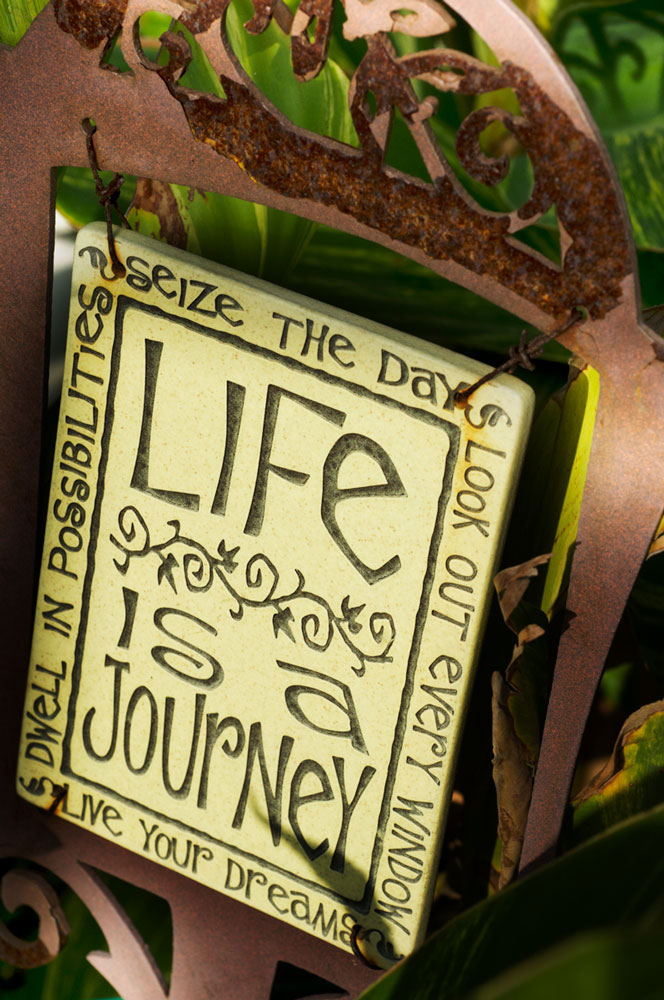 Seize the Day
Look out every window
Live your dreams
Dwell in Possibilities
Life
is a
Journey